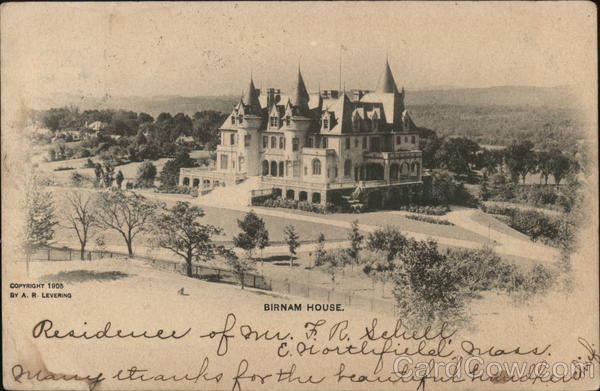 COPYRIGHT 1905
BY A. R. LEVERING
BIRNAM HOUSE.
Residence of Mr. F. R. Schell
E. Northfield, Mass.
Many thanks for the beautiful calla
CardCow.com